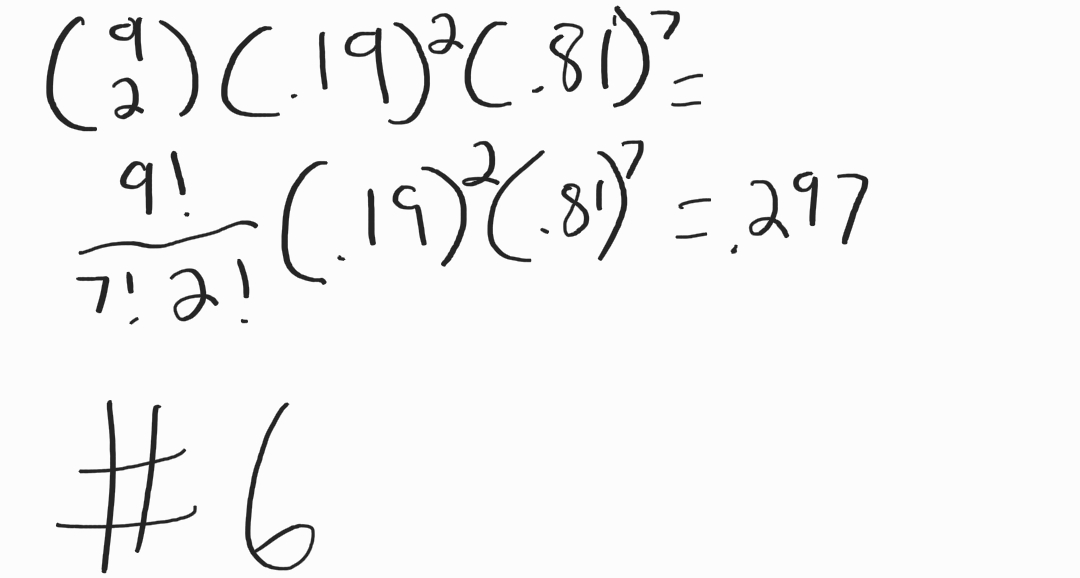 (9 2)(.19)²(.81)⁷=
9!/7!2! (.19)²(.81)⁷ = .297
# 6